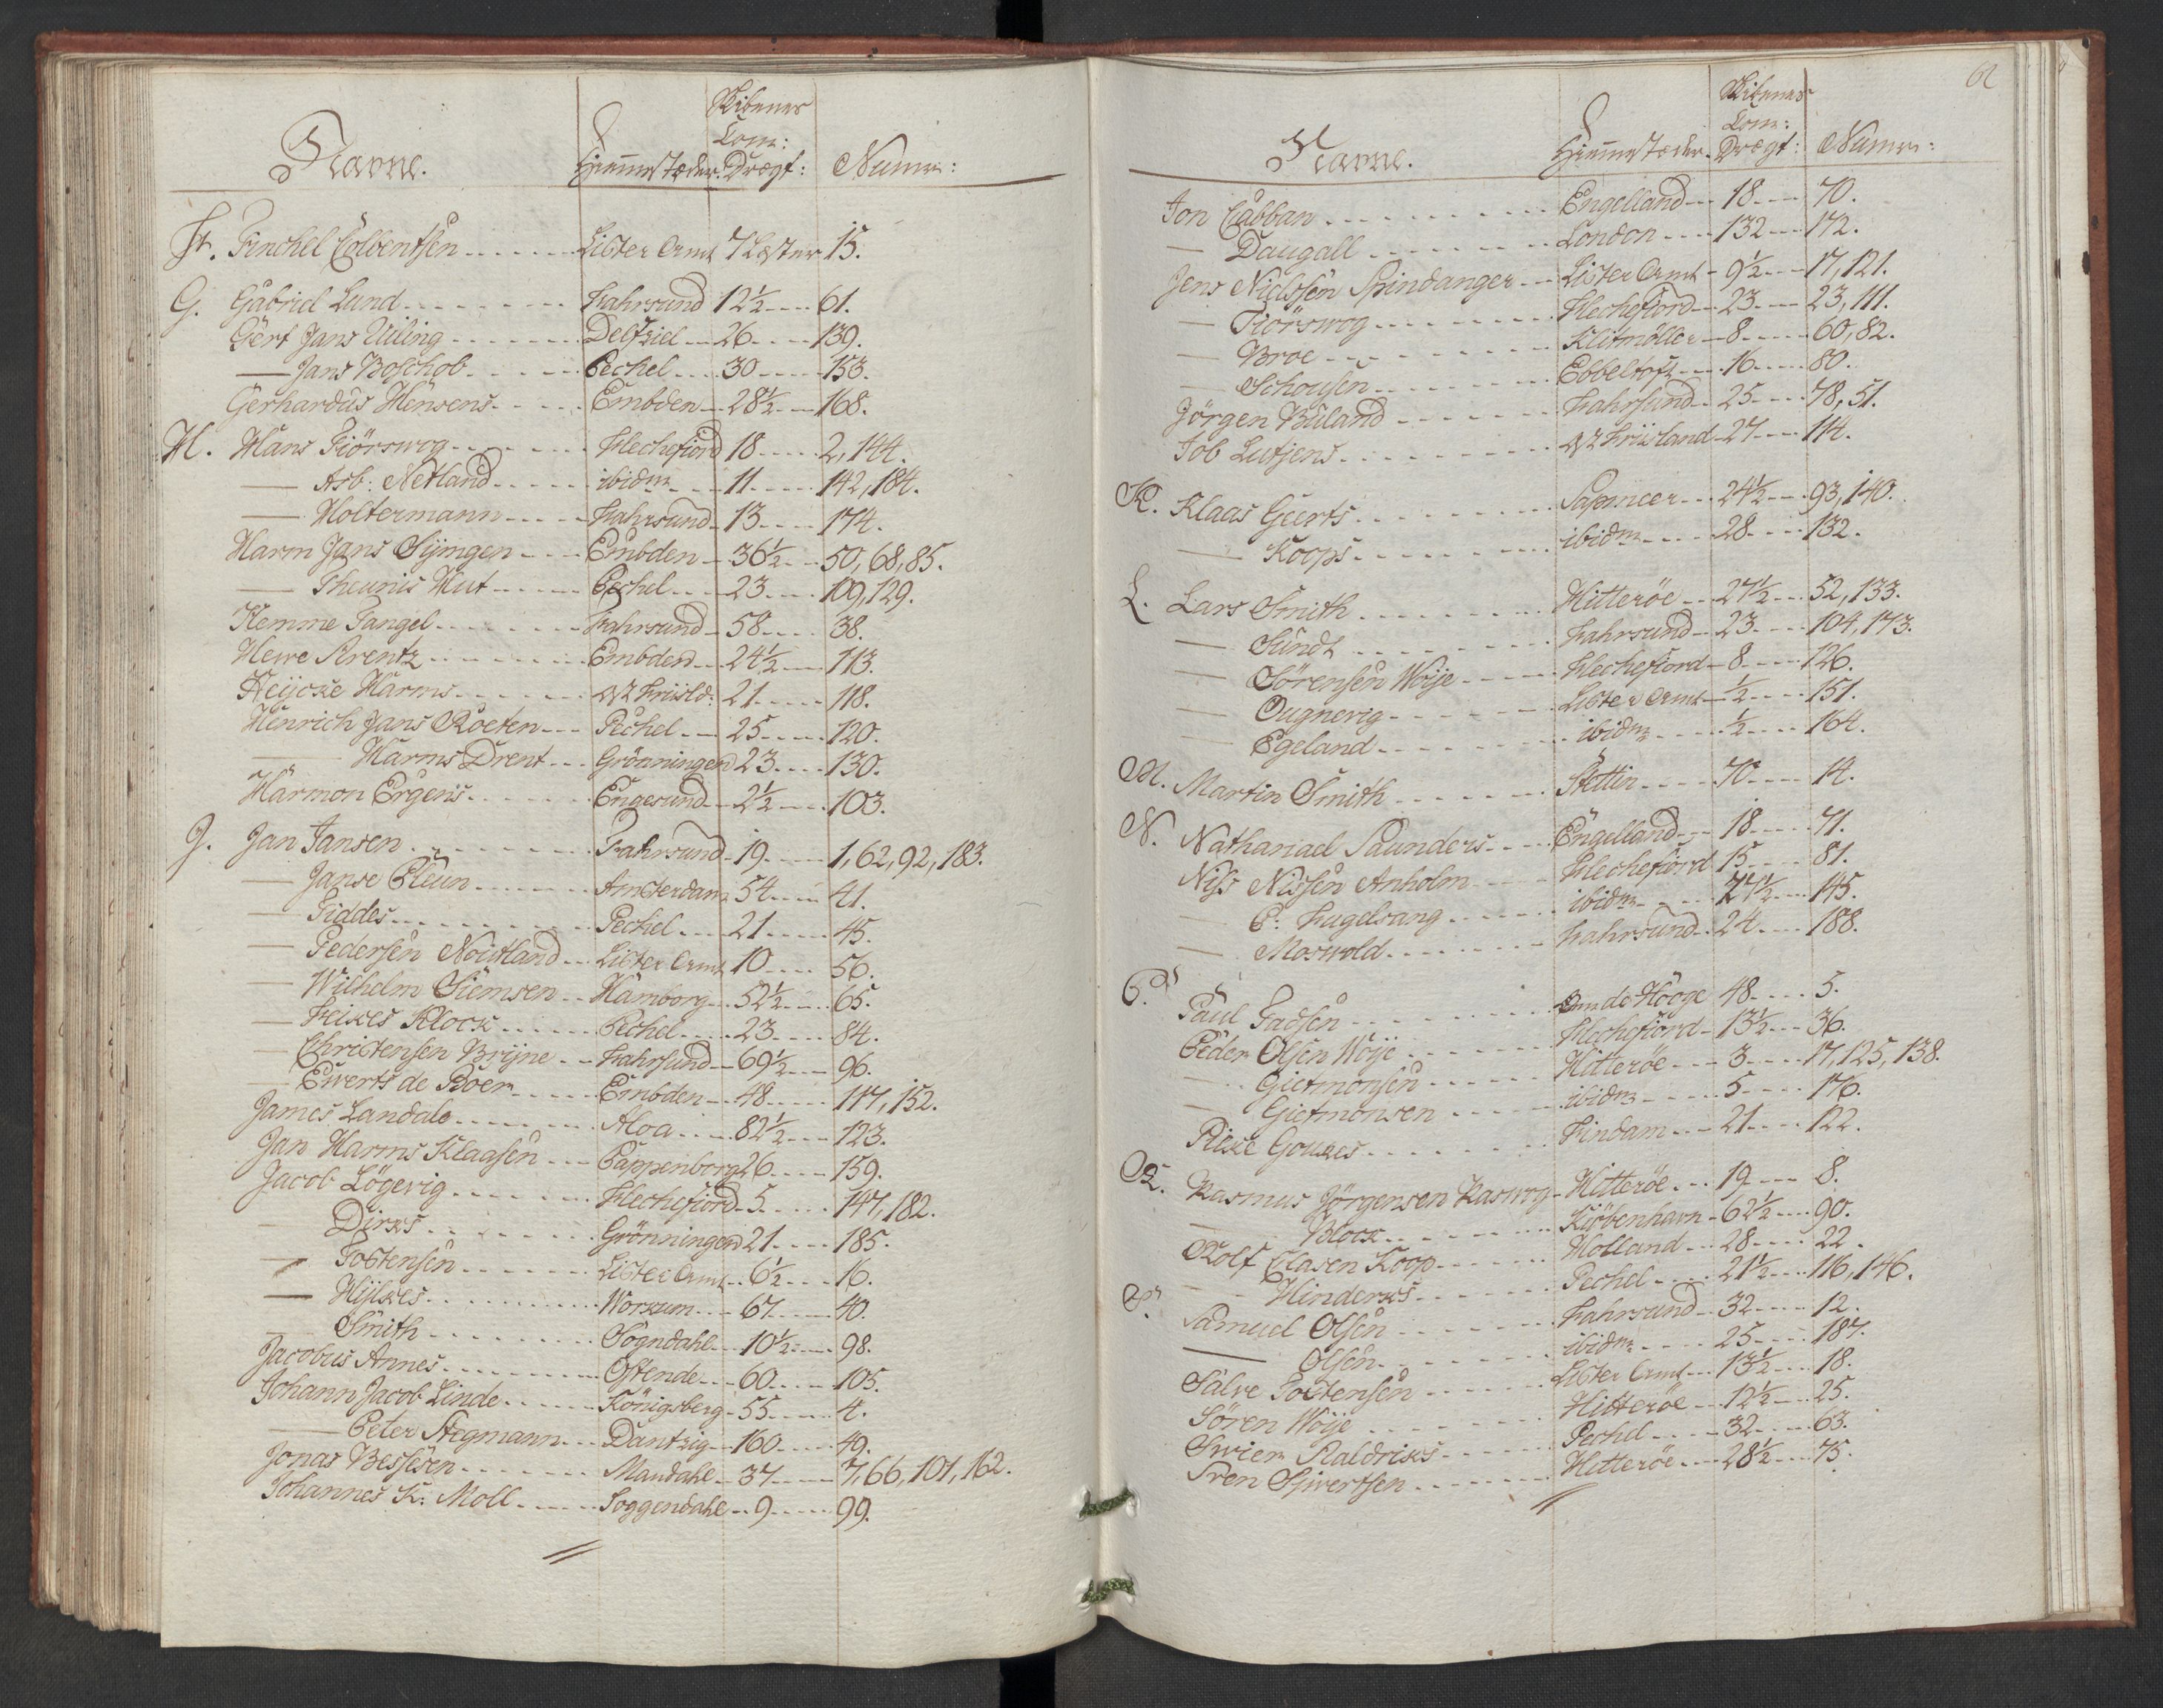 Navne. Hiemmstæder. Skibenes Com: Drægt: Numr:
F. Finchel Colbentsen Lister Amt 7 Læster 15.
G. Gabriel Lund Fahrsund 12½ 61.
Gert Jans Uiling Delfziel 26 139.
— Jans Boschob Peckel 30 153.
Gerhardus Hensens Embden 28½ 168.
H. Hans Fiörswog Flechefiord 18 2, 144.
— Asb: Netland ibidm 11 142, 184.
— Holtermann Fahrsund 13 174.
Harm Jans Sijmgen Embden 36½ 50, 68, 85.
— Theunis Hut Peckel 23 109, 129.
Hemme Tangel Fahrsund 58 38.
Hewe Arentz Embden 24½ 113.
Heijcke Harms OstFriisld: 21 118.
Henrich Jans Roeten Peckel 25 120.
— Harms Drent Grönningen 23 130.
Harmon Ergens Engesund 2½ 103.
J. Jan Jansen Fahrsund 19 1, 62, 92, 183.
— Janse Pleun Amsterdam 54 41.
— Fiddes Peckel 21 45.
— Pedersen Nouitland Lister Amt 10 56.
— Wilhelm Siemsen Hamborg 52½ 65.
— Feikes Klock Peckel 23 84.
— Christensen Brijne Fahrsund 69½ 96.
— Ewerts de Boer Embden 48 117, 152.
James Landale Aloa 82½ 123.
Jan Harms Klaasen Pappenborg 26 159.
Jacob Lögevig Flechefiord 5 147, 182.
— Dirks Grönningen 21 185.
— Tostensen Lister Amt 6½ 16.
— Hijlkes Workum 67 40.
— Smith Sogndahl 10½ 98.
Jacobus Annes Ostende 60 105.
Johann Jacob Linde Königsberg 55 4.
— Peter Stegmann Dantzig 160 49.
Jonas Bessesen Mandahl 37 7, 66, 101, 162.
Johannes K: Moll Soggendahl 9 99.
62
Navne. Hiemmstæder. Skibenes Com: Drægt: Numr:
Jon Cabban Engelland 18 70.
— Daugall London 132 172.
Jens Nielssen Spindanger Lister Amt 9½ 17, 121.
— Fiörswog Flechefiord 23 23, 111.
— Broe Klitmöller 8 60, 82.
— Schousen Ebbeltoft 16 80.
Jörgen Baland Fahrsund 25 78, 51.
Job Lutjens OstFriisland 27 114.
K. Klaas Geerts Sapmeer 24½ 93, 140.
— Koops ibidm 28 132.
L. Lars Smith Hitteröe 27½ 52, 133.
— Sundt Fahrsund 23 104, 173.
— Sörensen Woije Flechefiord 8 126.
— Ougnevig Lister Amt ½ 151.
— Egeland ibidm ½ 164.
M. Martin Smith Stettin 70 14.
N. Nathanael Saunders Engelland 18 71.
Niss Nissen Anholm Flechefiord 15 81.
— P: Fugelsang ibidm 27½ 145.
— Moswold Fahrsund 24 188.
P. Paul Gadsen Omde Hooge 48 5.
Peder Olsen Woije Flechefiord 13½ 36.
— Giermonsen Hitteröe 3 17, 125, 138.
— Giermonsen ibidm 5 176.
Pieke Goukes Findam 21 122.
R. Rasmus Jörgensen Raswog Hitteröe 19 8.
— Block Kiöbenhavn 62½ 90.
Rolf Clasen Koop Holland 28 22.
— Hinderks Peckel 21½ 116, 146.
S. Samuel Olsen Fahrsund 32 12.
— Olsen ibidm 25 187.
Salve Tostensen Lister Amt 13½ 18.
Sören Woije Hitteröe 12½ 25.
Swier Raldriks Peckel 32 63.
Sven Sivertsen Hitteröe 28½ 75.